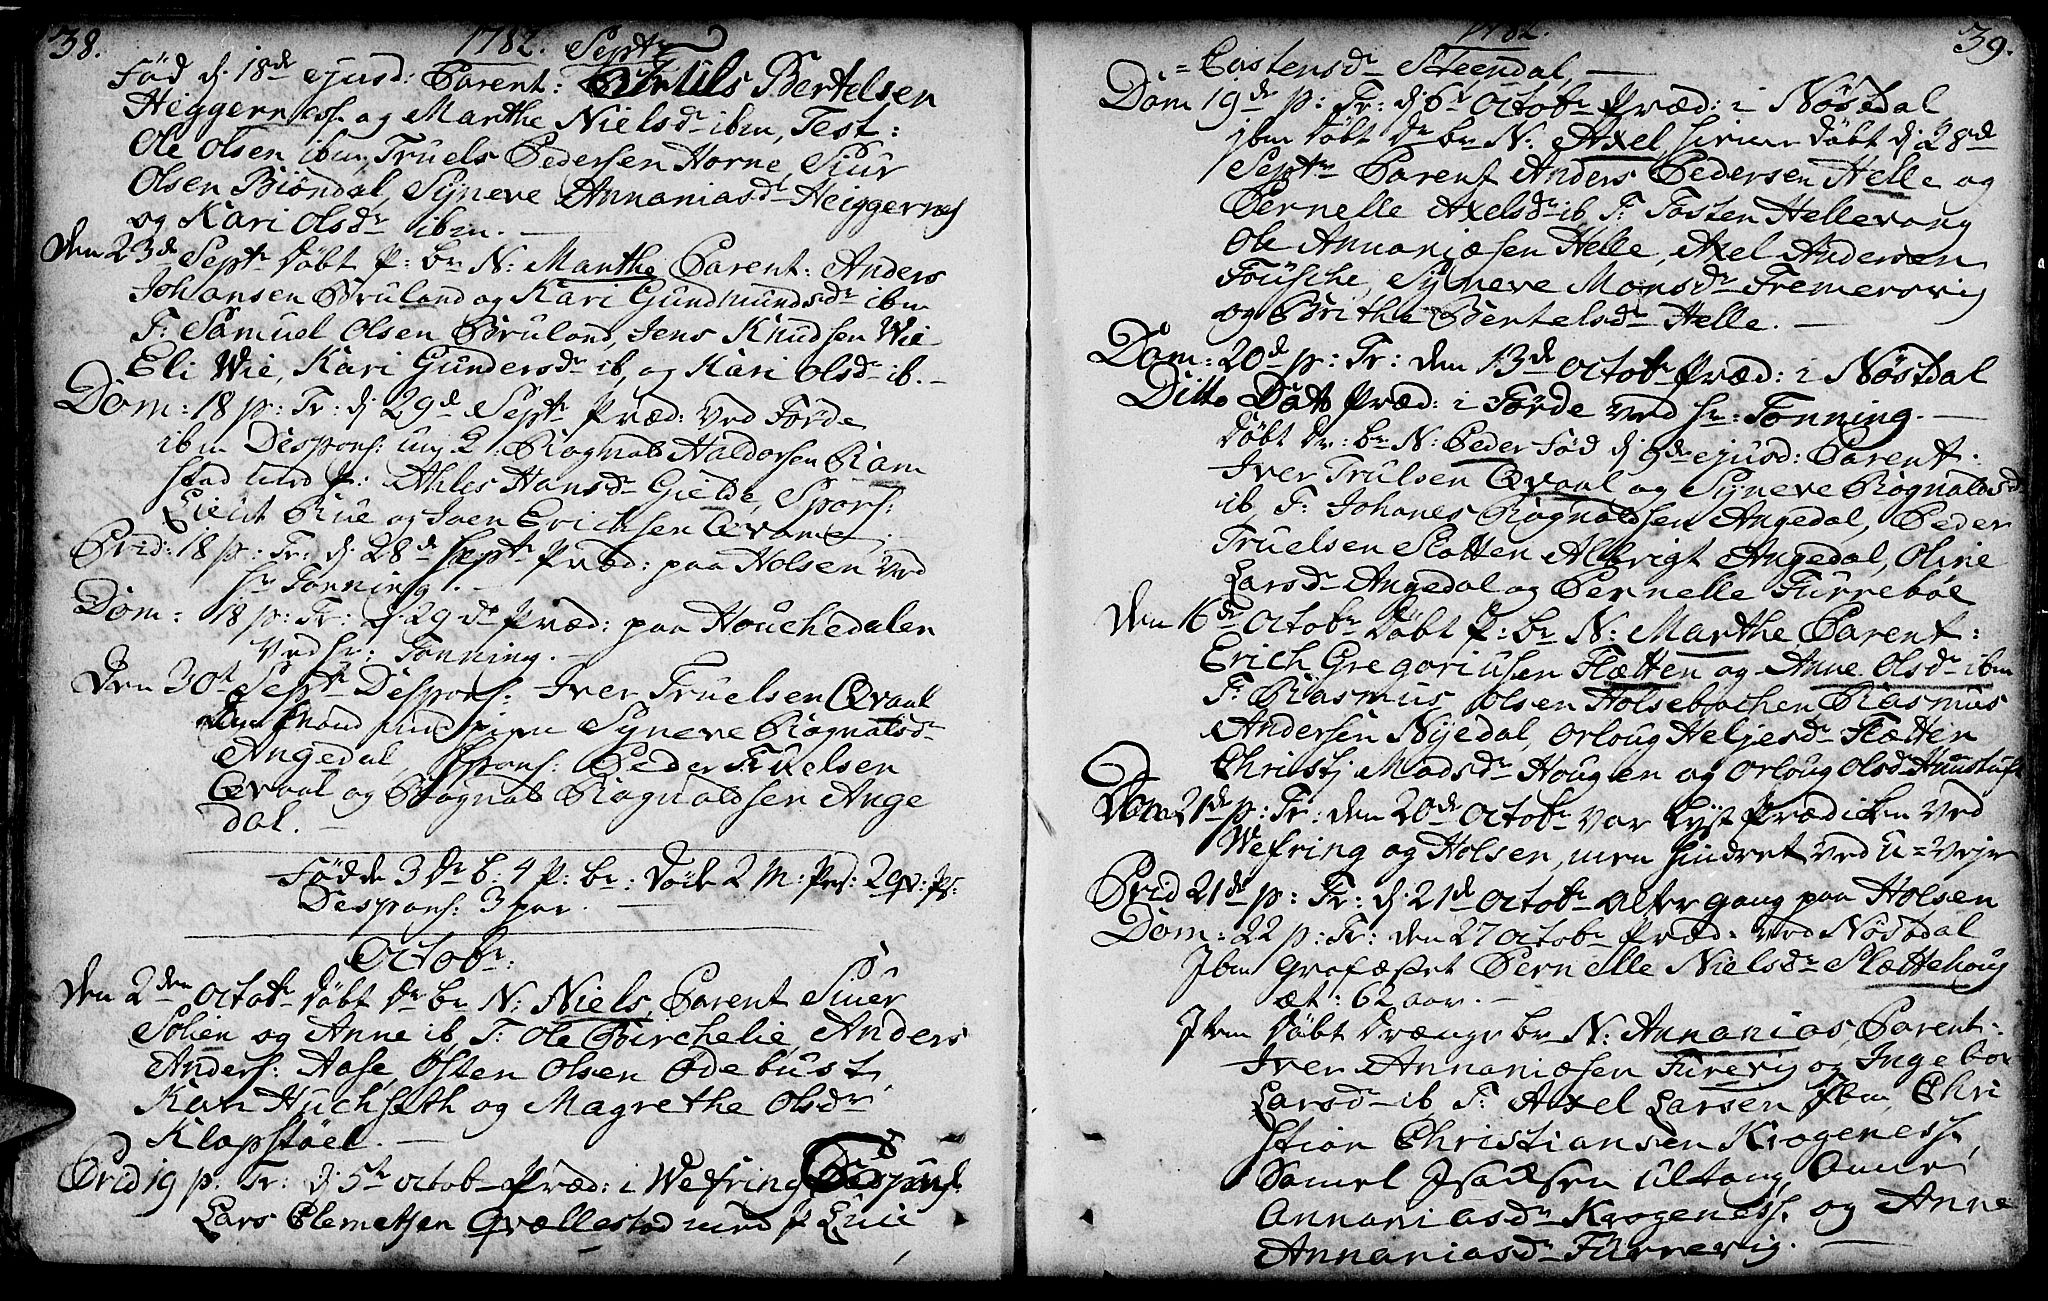 38.
1782. Septr
Fød d. 18de ejusd: Parent: Truls Bertelsen
Heggerness og Marthe Nielsdr ibm, Test:
Ole Olsen ibm, Truels Pedersen Horne, Siur
Olsen Biøndal, Syneve Annaniasdr Heiggernes
og Kari Olsdr ibm. —
Den 23de Septr døbt P: br N: Marthe Parent: Anders
Johansen Bruland og Kari Gundmundsdr ibm
T: Samuel Olsen Bruland, Jens Knudsen Wie
Eli Wie, Kari Gundersdr ib, og Kari Olsdr ib. —
Dom: 18 p: Tr: d. 29de Septr Præd: ved Førde
ibm Despons: ung Rognald Haldorsen Ram
stad med P: Ahles Hansdr Gielde, Spons:
Lieut Rue og Joen Erichsen Qvame.
Prid: 18 p: Tr: d. 28de Septr Præd: paa Holsen ved
hr Tonning. —
Dom: 18 p: Tr: d. 29de Præd: paa Houchedalen
ved hr: Tonning. —
Den 30t Septr Despons: Iver Truelsen Qvaal
med pigen Syneve Rognalsdr
Angedal, Spons: Peder Truelsen
Qvaal og Rognald Rognaldsen Ange
dal. —
Fødde 3 Dr b: 4 P: br: Døde 2 M:
Despons: 3 par. —
Octobr:
Den 2den Octobr døbt Dr br N: Niels, Parent Siuer
Solien og Anne ib, T: Ole Birchelie, Anders
Anders: Aase, Østen Olsen Ødebust,
Kari Huchseth og Magrethe Olsdr
Klopstøel. —
Prid 19 p: Tr: d. 5te Octob Præd: i Wefring Despons:
Lars Clemetsen Qvællestad med P Lucie
39.
1782.
= Tostensdr Steendal, —
Dom 19de p: Tr: d. 6te Octobr Præd: i Nøstdal
ibm døbt Dr br N: Axel, hiemme døbt d. 28de
Septr Parent Anders Pedersen Helle og
Pernelle Axelsdr ib T: Tosten Hellevang
Ole Annaniæsen Helle, Axel Andersen
Fousche, Syneve Monsdr Fremersvig
og Brithe Bertelsdr Helle. —
Dom: 20de p: Tr: den 13de Octobr Præd: i Nøstdal
Ditto Dato Præd: i Førde ved hr: Tonning. —
døbt Dr: br N: Peder fød d. 9de ejusd: Parent:
Iver Trulsen Qvaal og Syneve Rognaldsdr
ib, T: Johanes Rognaldsen Angedal, Peder
Truelsen Slotten Albrigt Angedal, Oline
Larsdr Angedal og Pernelle Furrebøe
Den 16de Octobr døbt P: br N: Marthe Parent:
Erich Gregoriusen Flætten og Anne Olsdr ibm
T: Rasmus Olsen Holsebachen Rasmus
Andersen Nyedal, Orloug Heljesdr Flætten
Christj Madsdr Hougen og Orloug Olsdr
Dom 21de p: Tr: den 20de Octobr var lyst Prædiken ved
Wefring og Holsen, men hindret ved U=vejr
Prid 21de p: Tr: d. 21de Octobr altergang paa Holsen
Dom: 22 p: Tr: den 27 Octobr Præd: ved Nøsdal
Ibm Grafæstet Pernelle Nielsdr Slættehoug
æt: 62 aar. —
Ibm døbt Drænge br N: Annanias, Parent:
Iver Annaniæsen Furevig og Ingebor
Larsdr ib, T: Axel Larsen Ibm, Chri
stian Christiansen Krogeness,
Samel Isacksen Ultang, Anne
Annaniasdr Krogeness. og Anne
Annaniasdr Fürrevig. —